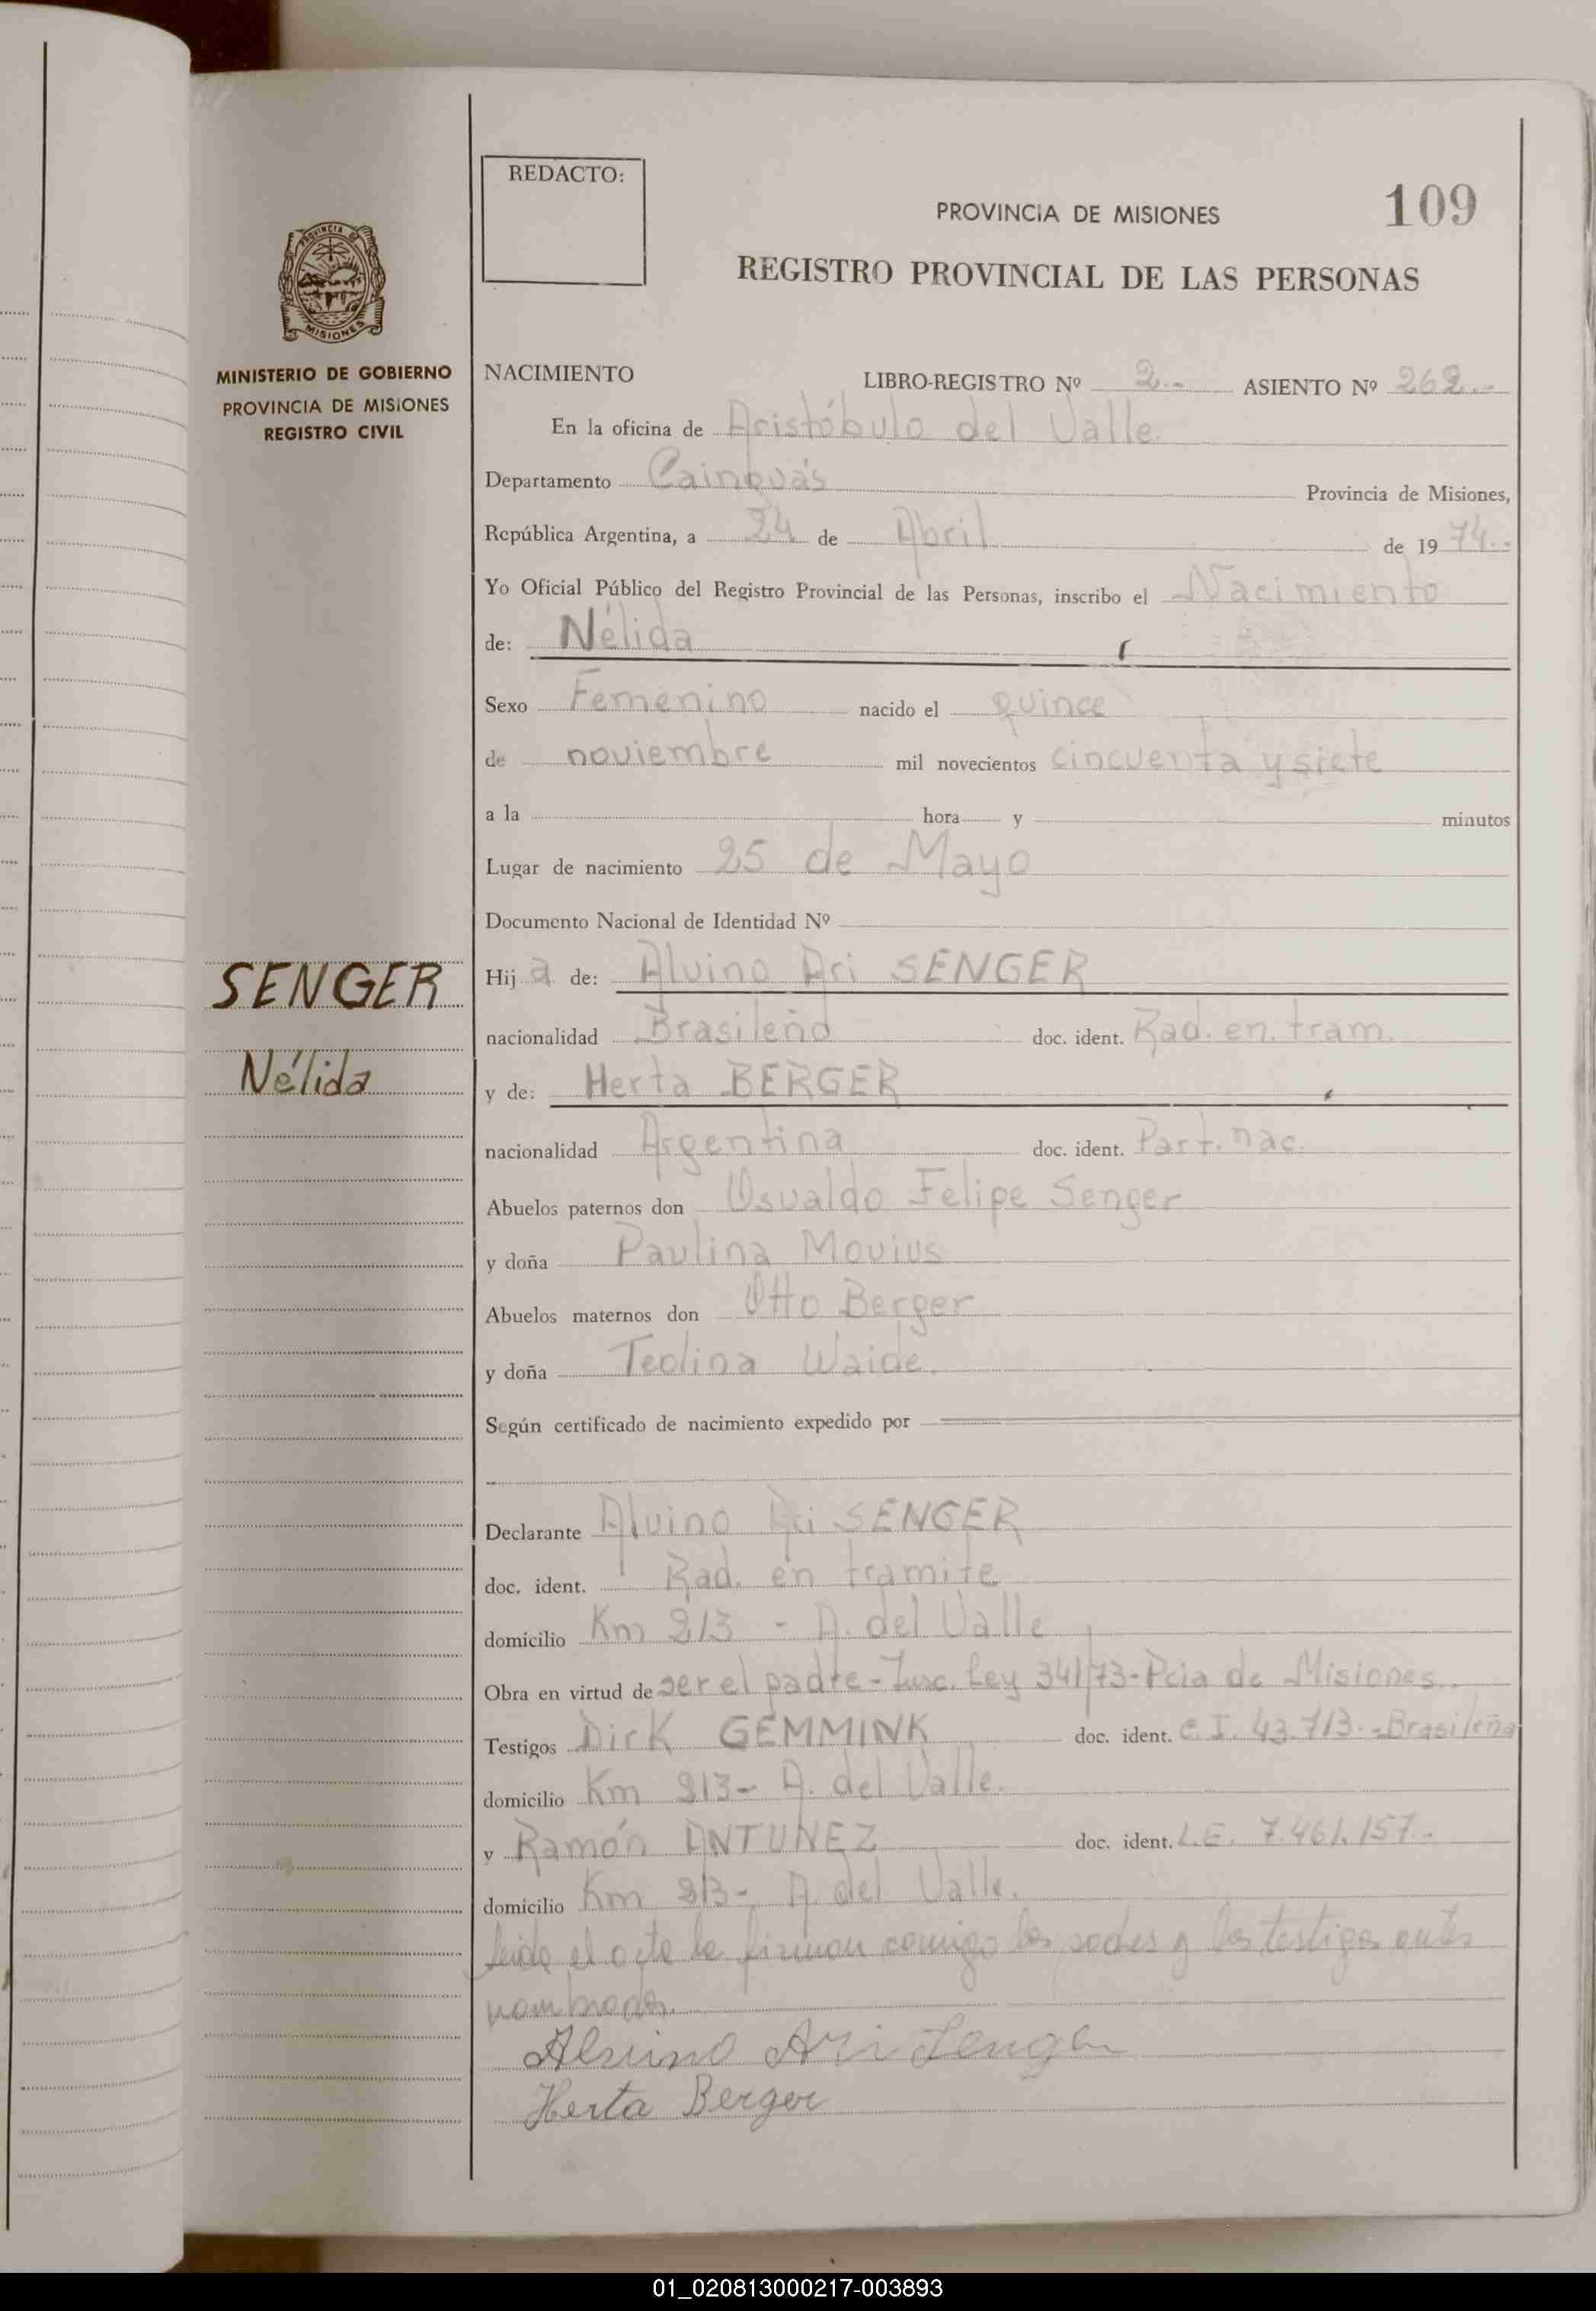 REDACTO:
PROVINCIA DE MISIONES
109
REGISTRO PROVINCIAL DE LAS PERSONAS
PROVINCIA DE MISIONES
MINISTERIO DE GOBIERNO
PROVINCIA DE MISIONES
REGISTRO CIVIL
NACIMIENTO LIBRO-REGISTRO Nº 2.- ASIENTO Nº 262.-
En la oficina de Aristóbulo del Valle.
Departamento Cainguás Provincia de Misiones,
República Argentina, a 24 de Abril de 1974.-
Yo Oficial Público del Registro Provincial de las Personas, inscribo el Nacimiento
de: Nélida
Sexo Femenino nacido el quince
de noviembre mil novecientos cincuenta y siete
a la hora y minutos
Lugar de nacimiento 25 de Mayo
Documento Nacional de Identidad Nº
SENGER
Nélida
Hija de: Alvino Ari SENGER
nacionalidad Brasileño doc. ident. Rad. en. tram.
y de: Herta BERGER
nacionalidad Argentina doc. ident. Part. nac.
Abuelos paternos don Osvaldo Felipe Senger
y doña Paulina Movius
Abuelos maternos don Otto Berger
y doña Teolina Waide.
Según certificado de nacimiento expedido por
Declarante Alvino Ari SENGER
doc. ident. Rad. en tramite
domicilio Km 213 - A. del Valle
Obra en virtud de ser el padre - Insc. Ley 341/73 - Pcia de Misiones.
Testigos Dirk GEMMINK doc. ident. C.I. 43.713.- Brasileña
domicilio Km 213 - A. del Valle.
y Ramón ANTUNEZ doc. ident. L.E. 7.461.157.-
domicilio Km 213 - A. del Valle.
leída el acta la firman conmigo los padres y los testigos antes
nombrados.
Alvino Ari Senger
Herta Berger
01_020813000217-003893